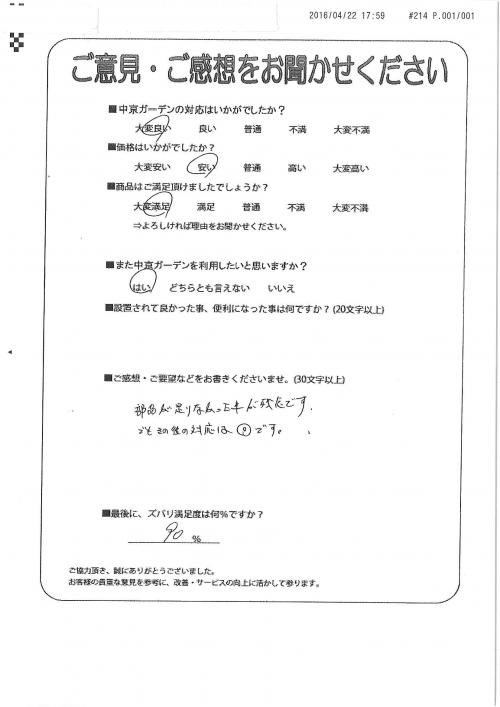 2016/04/22 17:59 #214 P.001/001
ご意見・ご感想をお聞かせください
■中京ガーデンの対応はいかがでしたか?
大変良い 良い 普通 不満 大変不満
■価格はいかがでしたか?
大変安い 安い 普通 高い 大変高い
■商品はご満足頂けましたでしょうか?
大変満足 満足 普通 不満 大変不満
⇒よろしければ理由をお聞かせください。
■また中京ガーデンを利用したいと思いますか?
はい どちらとも言えない いいえ
■設置されて良かった事、便利になった事は何ですか?(20文字以上)
■ご感想・ご要望などをお書きくださいませ。(30文字以上)
部品が足りなかった事が残念です。
でもその後の対応は◎です。
■最後に、ズバリ満足度は何%ですか?
90 %
ご協力頂き、誠にありがとうございました。
お客様の貴重な意見を参考に、改善・サービスの向上に活かして参ります。